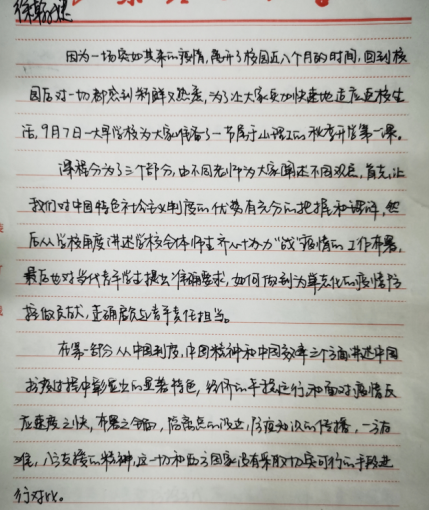 因为一场突如其来的疫情,离开了校园近八个月的时间,回到校
园后对一切都感到新鲜又热爱,为了让大家更加快速地适应返校生
活,9月7日一早学校为大家准备了一节属于山理工的秋季开学第一课。
课程分为了三个部分,由不同老师为大家阐述不同观点,首先让
我们对中国特色社会主义制度的优势有充分的把握和认识,然
后从学校角度讲述学校全体师生齐心协力"战"疫情的工作布署,
最后也对当代青年学生提出准确要求,如何做到为常态化的疫情防
控做贡献,并确履行青年责任担当。
在第一部分从中国制度,中国精神和中国效率三个方面讲述中国
抗疫过程中彰显出的显著特色,经济的平稳运行,和面对疫情反
应速度之快,布署之全面,隔离点的设立,防疫知识的传播,一方有
难,八方支援的精神,这一切和西方国家没有采取切实可行的手段进
行对比。